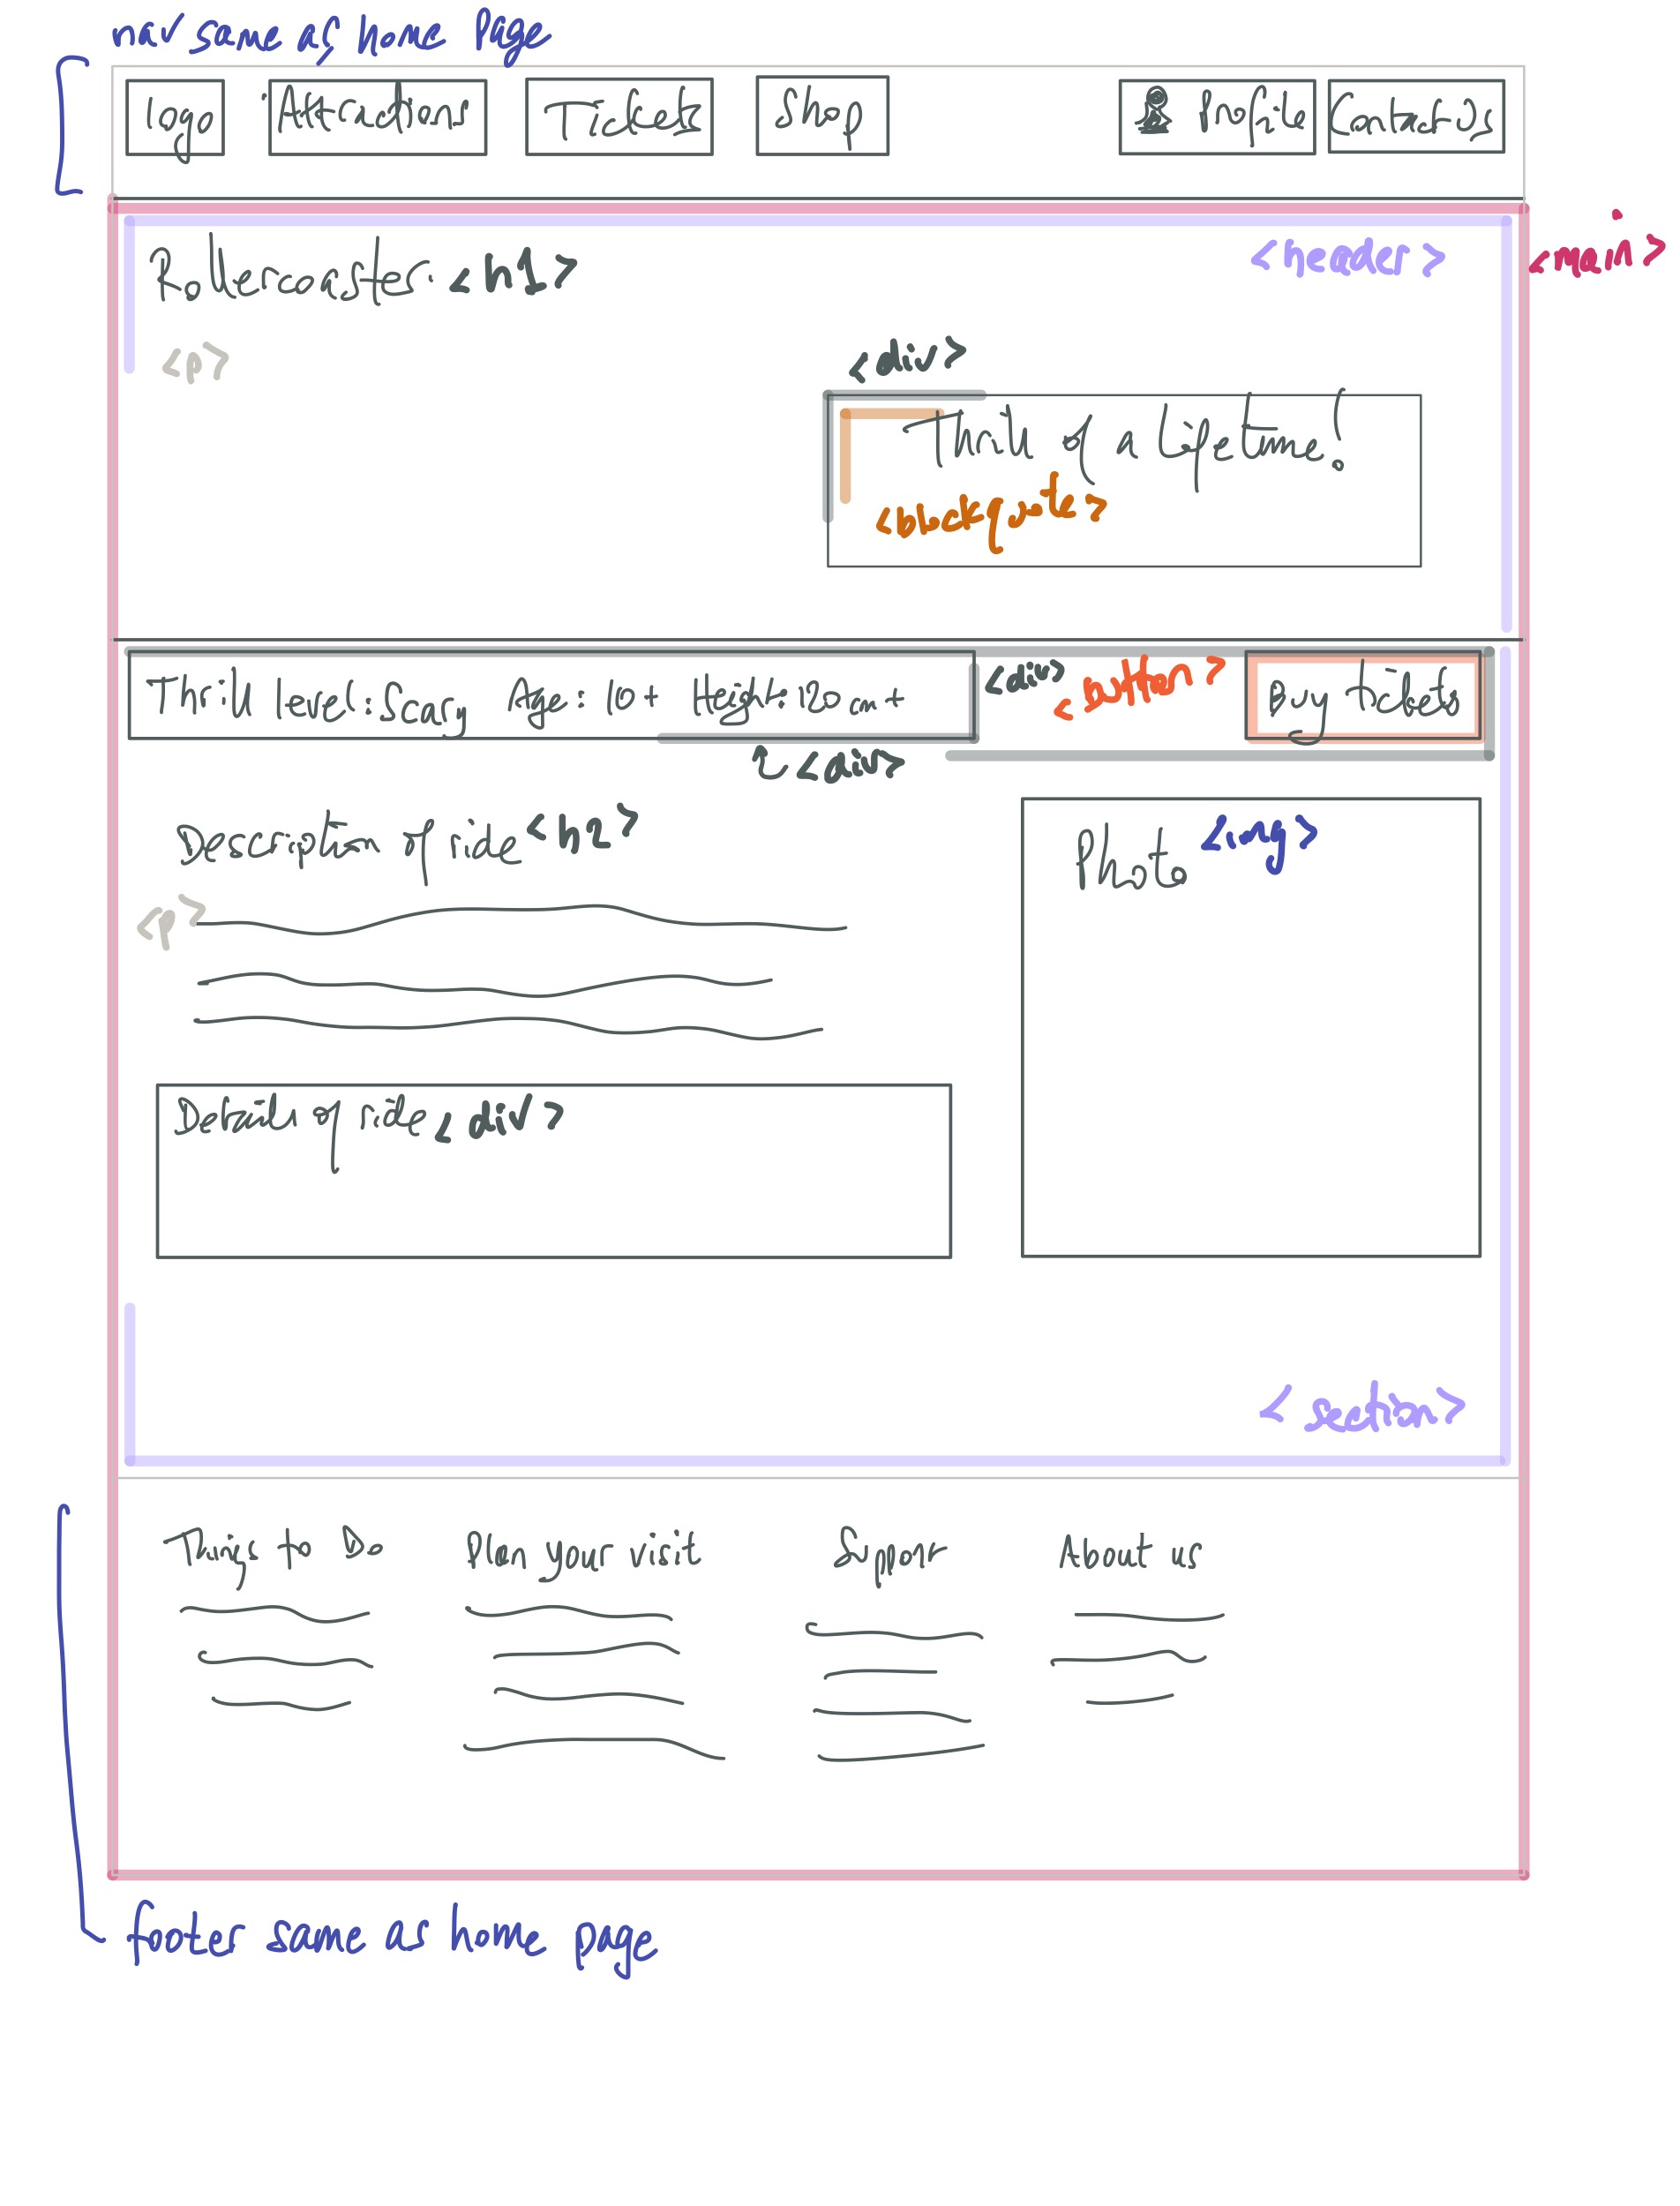 nav same as home page
logo Attractions Tickets Shop Profile Contact Us
Rollercoaster <h1> <header> <main>
<p>
<div>
Thrill of a lifetime!
<blockquote>
Thrill level: Scary Age: 10+ Height: 120 cm+ <div> <button> Buy tickets
<div>
Description of ride <h2> Photo <img>
<p>
Details of ride <div>
<section>
Things to Do Plan your visit Support About us
footer same as home page